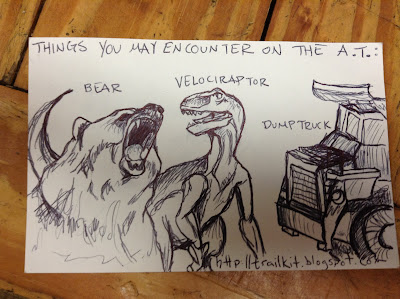 THINGS YOU MAY ENCOUNTER ON THE A.T.:
BEAR
VELOCIRAPTOR
DUMPTRUCK
http://trailkit.blogspot.com